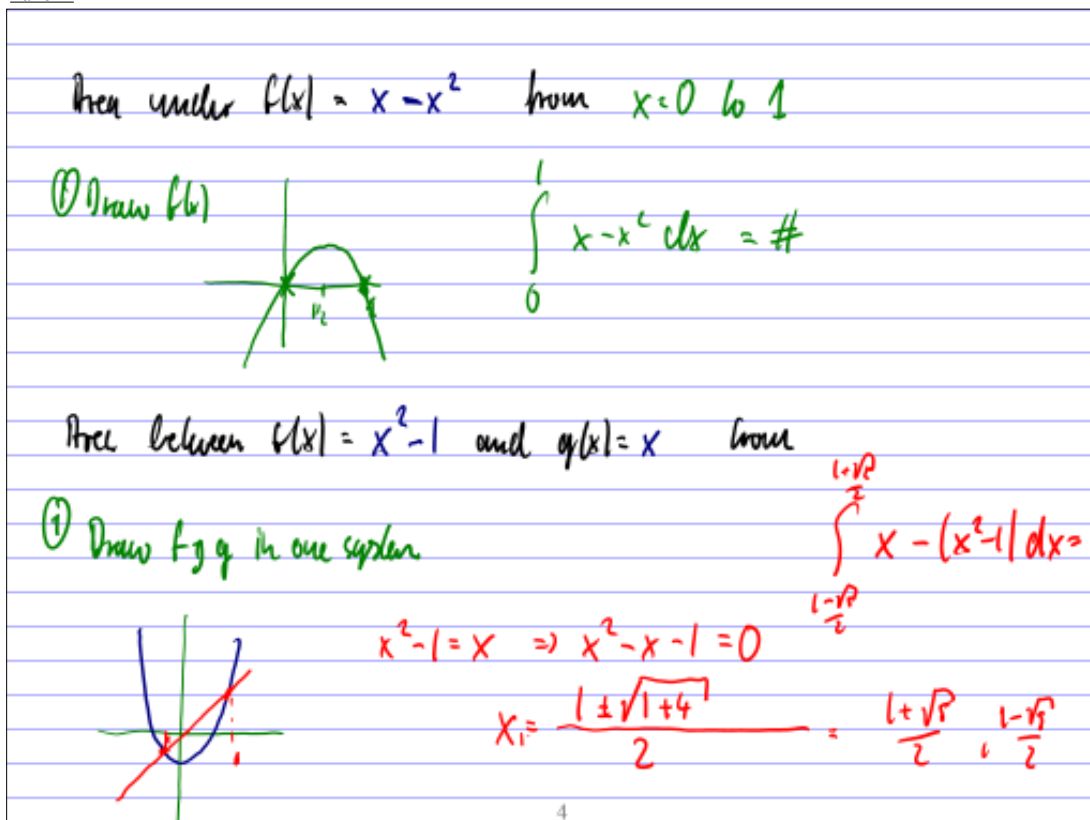 Area under f(x) = x - x² from x=0 to 1
① Draw f(x)
∫₀¹ x - x² dx = #
1/2 1
Area between f(x) = x² - 1 and g(x) = x from
① Draw f, g in one system
∫_{(1-√5)/2}^{(1+√5)/2} x - (x²-1) dx =
x² - 1 = x ⇒ x² - x - 1 = 0
x₁ = (1 ± √(1+4))/2 = (1+√5)/2 , (1-√5)/2
4